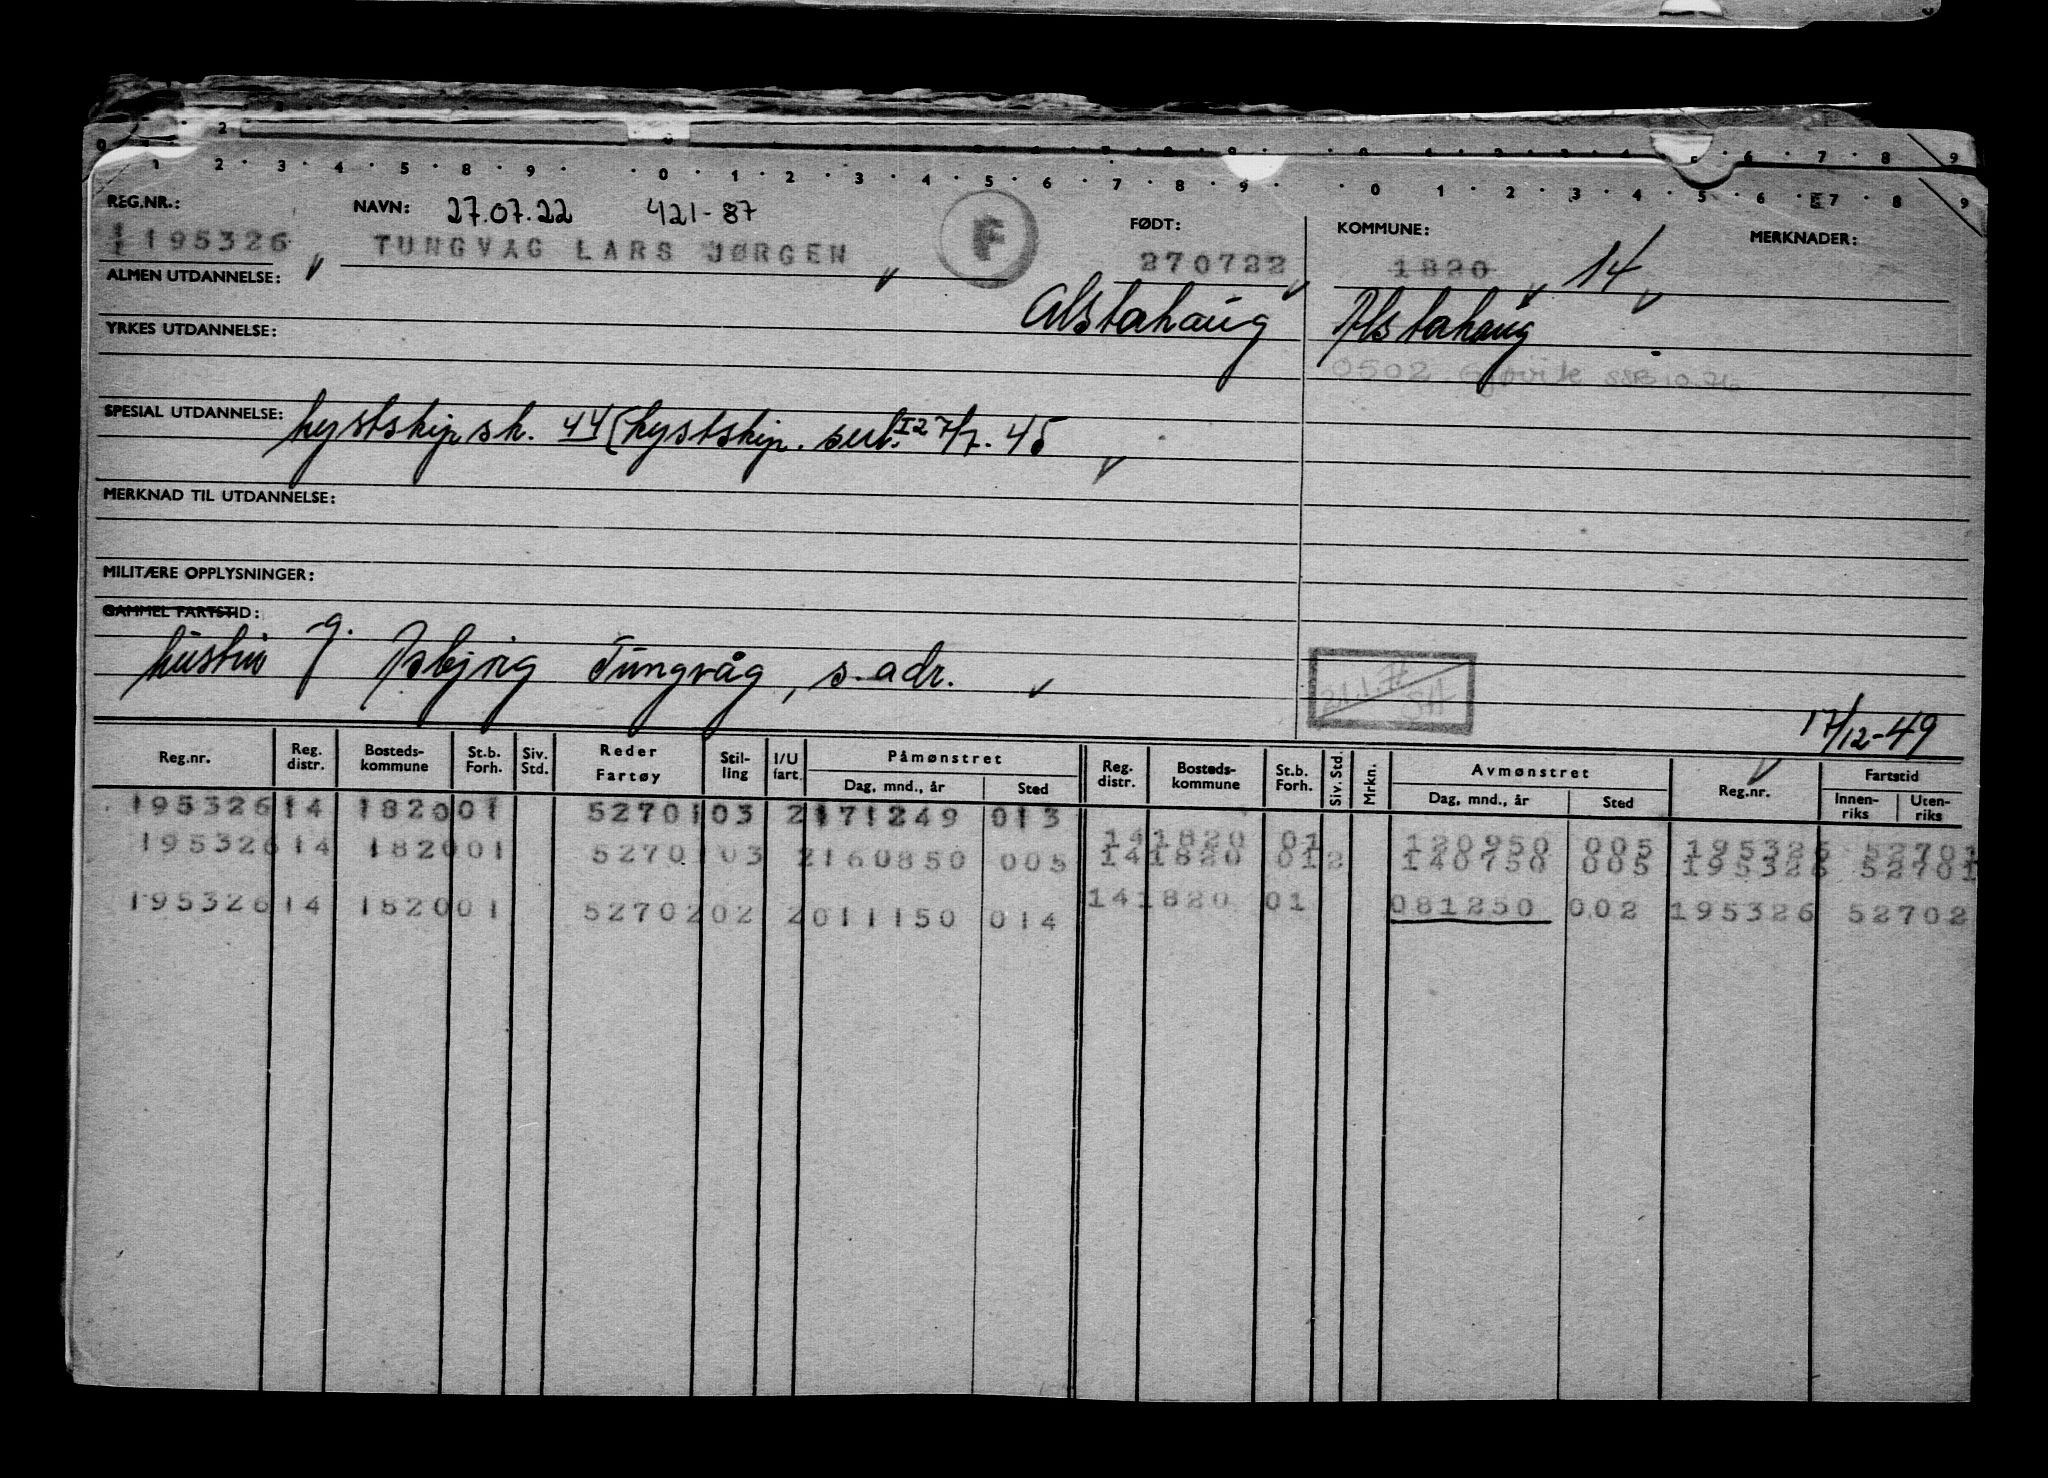 REG.NR.: NAVN: 27.07.22 421-87 F FØDT: KOMMUNE: MERKNADER:
195326 TUNGVÅG LARS JØRGEN 270722 1820 14
ALMEN UTDANNELSE:
Alstahaug Alstahaug
YRKES UTDANNELSE:
0502 Gjøvik SSB 10.76
SPESIAL UTDANNELSE: kystskip.sk. 44 (kystskip. sert. 27/7. 45
MERKNAD TIL UTDANNELSE:
MILITÆRE OPPLYSNINGER:
GAMMEL FARTSTID:
g.
hustru Asbjørg Tungvåg, s. adr.
17/12-49
Reg.nr. Reg. distr. Bosteds- kommune St.b. Forh. Siv. Std. Reder Fartøy Stil- ling I/U fart. Påmønstret Dag, mnd., år Sted Reg. distr. Bosteds- kommune St.b. Forh. Siv. Std. Mrkn. Avmønstret Dag, mnd., år Sted Reg.nr. Fartstid Innen- riks Uten- riks
195326 14 1820 01 52701 03 2 171249 013
14 1820 01 120950 005 195326 52701
195326 14 1820 01 52701 03 2 160850 005
14 1820 01 2 140750 005 195326 52701
195326 14 1820 01 52702 02 2 011150 014
14 1820 01 081250 002 195326 52702